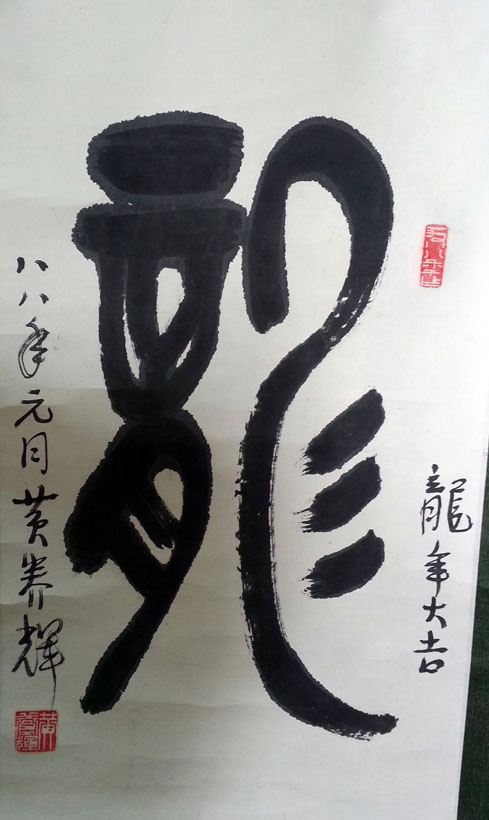 龍年大吉
龍
八八年元月黄养輝